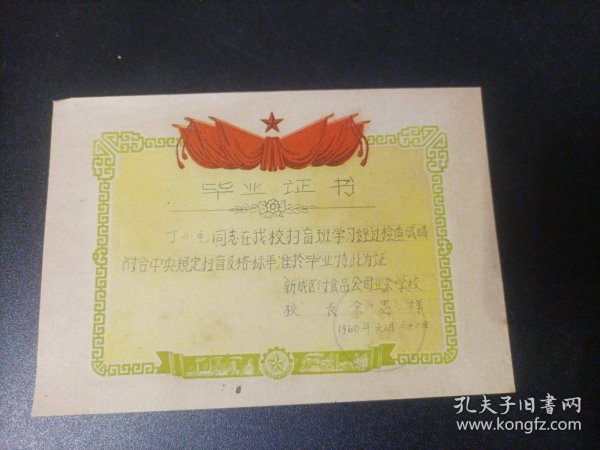 毕业证书
丁小毛同志在我校扫盲班学习经过检查成绩
附合中央规定扫盲及格标准准于毕业特此为证
新城区付食品公司业余学校
校 长 余忠祥
1960年元月二十二日
孔夫子旧书网
www.kongfz.com